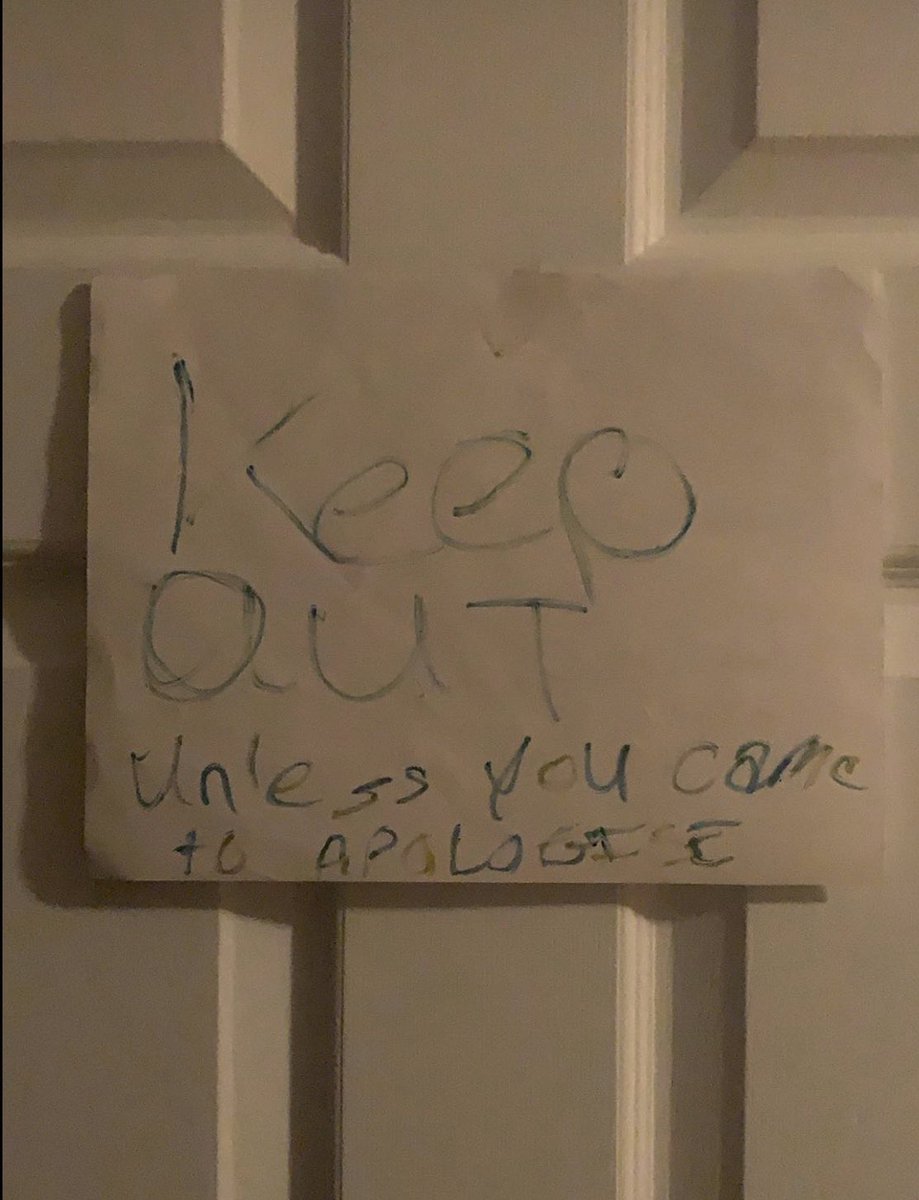 Keep
OUT
Unless you came
to APOLOGISE